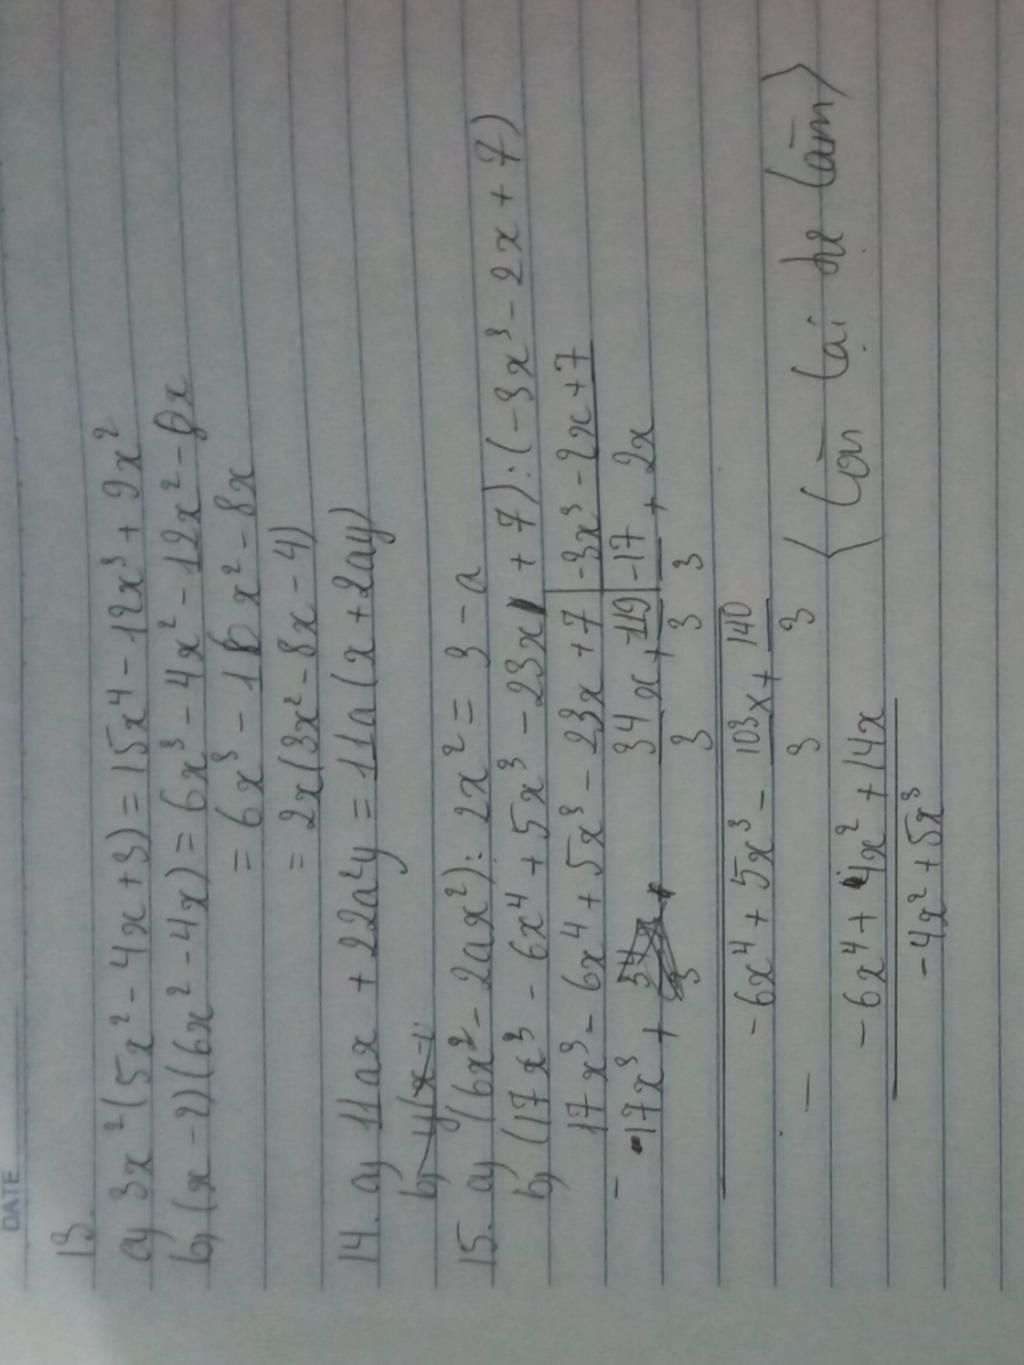 DATE
13.
a, 3x²(5x² - 4x + 3) = 15x⁴ - 12x³ + 9x²
b, (x - 2)(6x² - 4x) = 6x³ - 4x² - 12x² - 8x
= 6x³ - 16x² - 8x
= 2x(3x² - 8x - 4)
14. a, 11ax + 22a²y = 11a(x + 2ay)
b, y(x-1
15. a, (6x² - 2ax²) : 2x² = 3 - a
b, (17x³ - 6x⁴ + 5x³ - 23x + 7) : (-3x³ - 2x + 7)
17x³ - 6x⁴ + 5x³ - 23x + 7 | -3x³ - 2x + 7
- -17x³ + 34/3 x + 119/3 | -17/3 + 2x
-6x⁴ + 5x³ - 103/3 x + 140/3
- -6x⁴ + 4x² + 14x
-4x² + 5x³